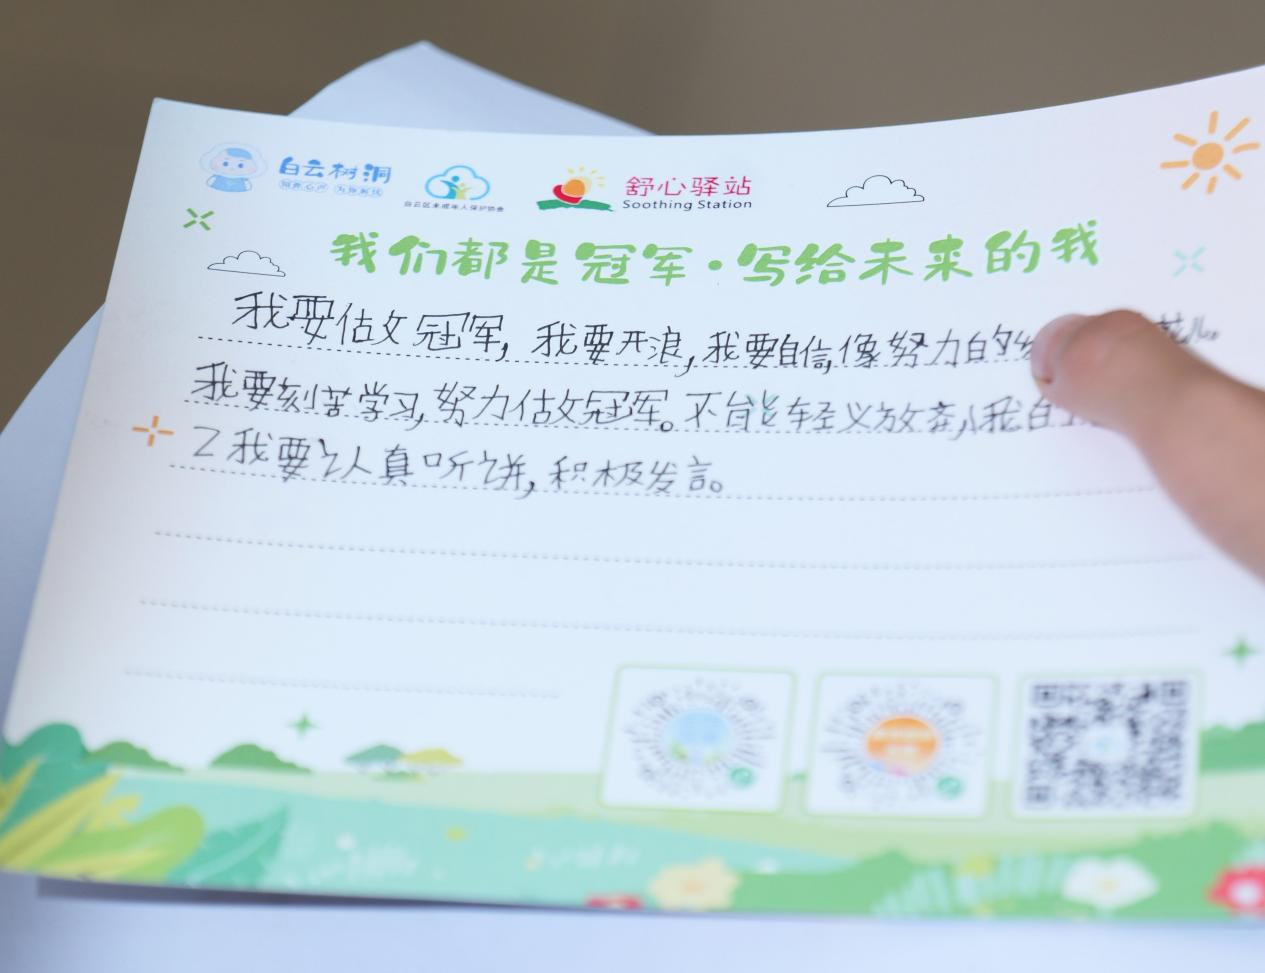 白云树洞
倾听心声 为你解忧
白云区未成年人保护协会
舒心驿站
Soothing Station
我们都是冠军·写给未来的我
我要做冠军,我要开浪,我要自信,像努力的
我要刻苦学习,努力做冠军。不能轻义放弃,我
乙我要认真听讲,积极发言。